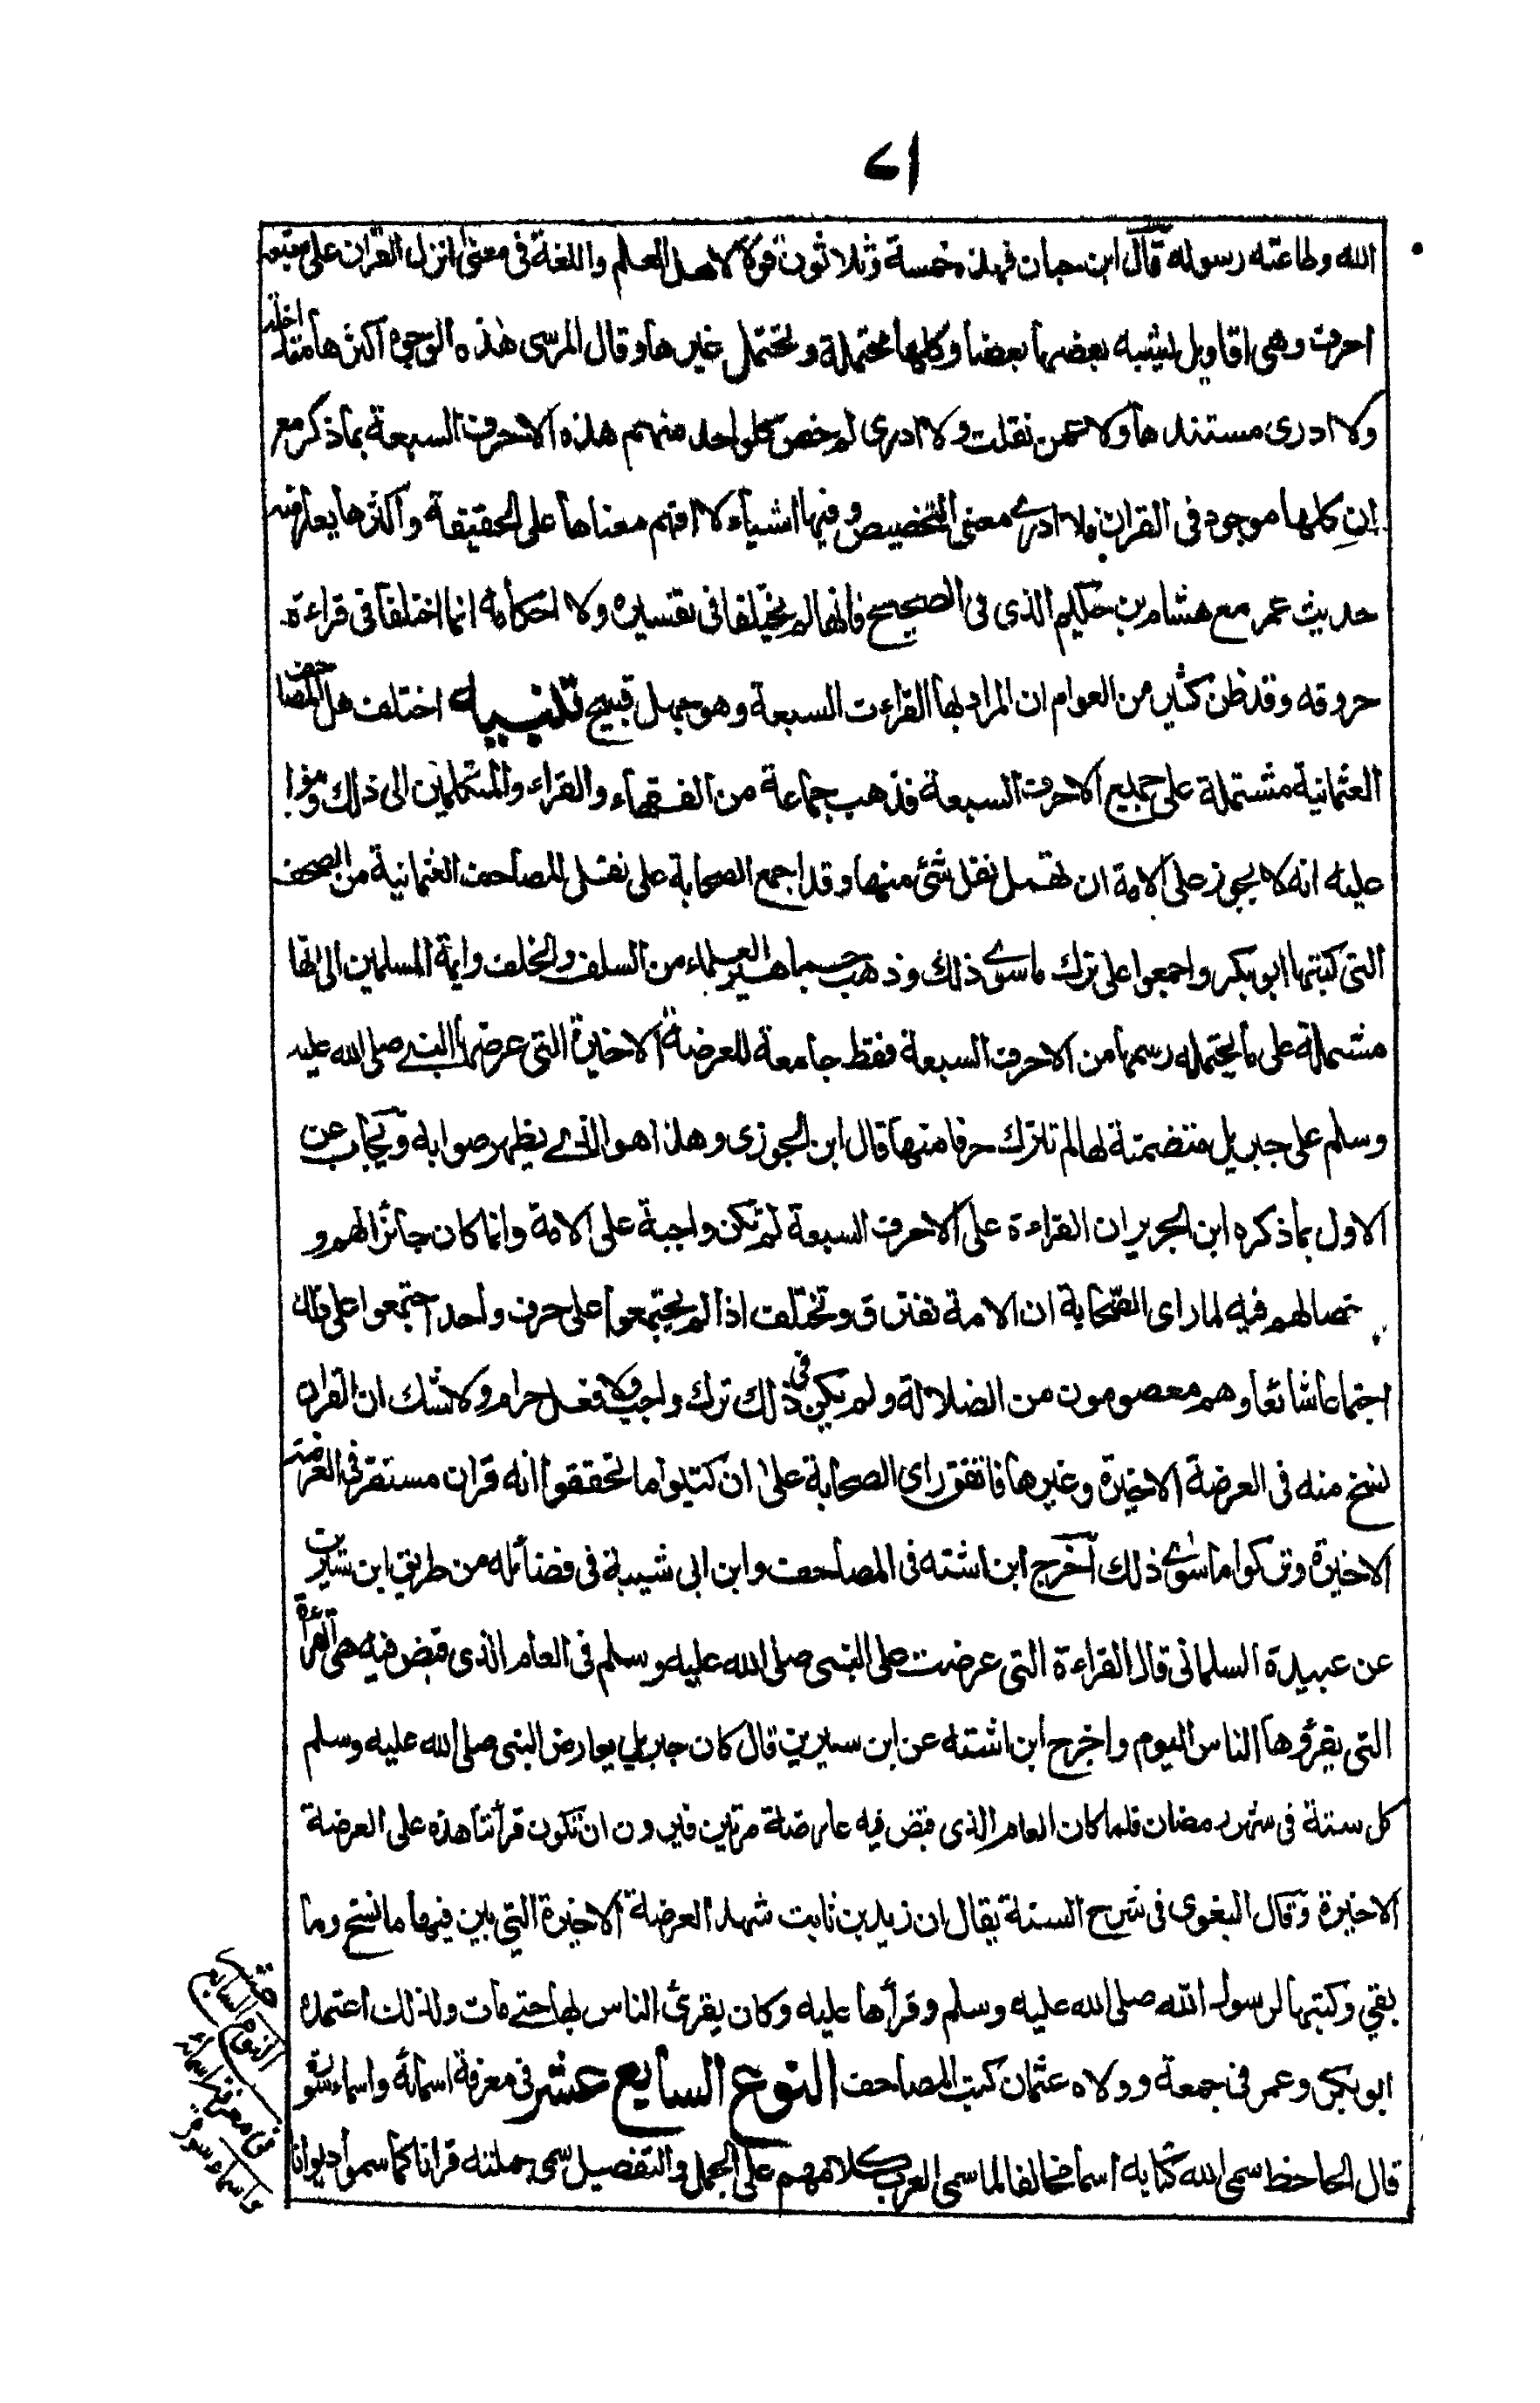 الله وطاعته رسوله قال ابن حبان فهذه خمسة وثلاثون قولا لاهل العلم واللغة فى معنى انزل القران على سبعة
احرف وهى اقاويل يشبه بعضها بعضا وكلها محتملة وتحتمل غيرها وقال المرسى هذه الوجوه اكثرها متداخلة
ولا ادرى مستندها ولا عمن نقلت ولا ادرى لم خص كل واحد منهم هذه الاحرف السبعة بما ذكر مع
ان كلها موجود فى القران فلا ادرى معنى التخصيص وفيها اشياء لا افهم معناها على الحقيقة واكثرها يعارضه
حديث عمر مع هشام بن حكيم الذى فى الصحيح فانهما لم يختلفا فى تفسيره ولا احكامه انما اختلفا فى قراءة
حروفه وقد ظن كثير من العوام ان المراد بها القراءت السبعة وهو جهل قبيح تنبيه اختلف هل المصاحف
العثمانية مشتملة على جميع الاحرف السبعة فذهب جماعة من الفقهاء والقراء والمتكلمين الى ذلك
عليه انه لا يجوز على الامة ان تهمل نقل شئ منها وقد اجمع الصحابة على نقل المصاحف العثمانية من الصحف
التى كتبها ابو بكر واجمعوا على ترك ما سوى ذلك وذهب جماهير العلماء من السلف والخلف وايمة المسلمين الى انها
مشتملة على ما يحتمله رسمها من الاحرف السبعة فقط جامعة للعرضة الاخيرة التى عرضها النبى صلى الله عليه
وسلم على جبريل متضمنة لها لم تترك حرفا منها قال ابن الجوزى وهذا هو الذى يظهر صوابه ويجاب عن
الاول بما ذكره ابن الجرير ان القراءة على الاحرف السبعة لم تكن واجبة على الامة وانما كان جائزا لهم و
خصا لهم فيه لما راى الصحابة ان الامة تفترق وتختلف اذا لم يجتمعوا على حرف واحد اجتمعوا على ذلك
اجتماعا شائعا وهم معصومون من الضلالة ولم يكن فى ذلك ترك واجب ولا فعل حرام ولا شك ان القران
نسخ منه فى العرضة الاخيرة وغيرها فاتفق راى الصحابة على ان كتبوا ما تحققوا انه قران مستقر فى العرضة
الاخيرة وتركوا ما سوى ذلك اخرج ابن اشته فى المصاحف وابن ابى شيبة فى فضائله من طريق ابن سيرين
عن عبيدة السلمانى قال القراءة التى عرضت على النبى صلى الله عليه وسلم فى العام الذى قبض فيه هى القرأة
التى يقرؤها الناس اليوم واخرج ابن اشته عن ابن سيرين قال كان جبريل يعارض النبى صلى الله عليه وسلم
كل سنة فى شهر رمضان فلما كان العام الذى قبض فيه عارضه مرتين فيرون ان تكون قرأتنا هذه على العرضة
الاخيرة وقال البغوى فى شرح السنة يقال ان زيد بن ثابت شهد العرضة الاخيرة التى بين فيها ما نسخ وما
بقى وكتبها لرسول الله صلى الله عليه وسلم وقرأها عليه وكان يقرئ الناس بها حتى مات ولذلك اعتمده
ابو بكر وعمر فى جمعة وولاه عثمان كتب المصاحف النوع السابع عشر فى معرفة اسمائه واسماء سوره
قال الجاحظ سمى الله كتابه اسما مخالفا لما سمى العرب كلامهم على الجمل والتفصيل سمى جملته قرانا كما سموا ديوانا
النوع السابع عشر
فى معرفة اسمائه
واسماء سوره